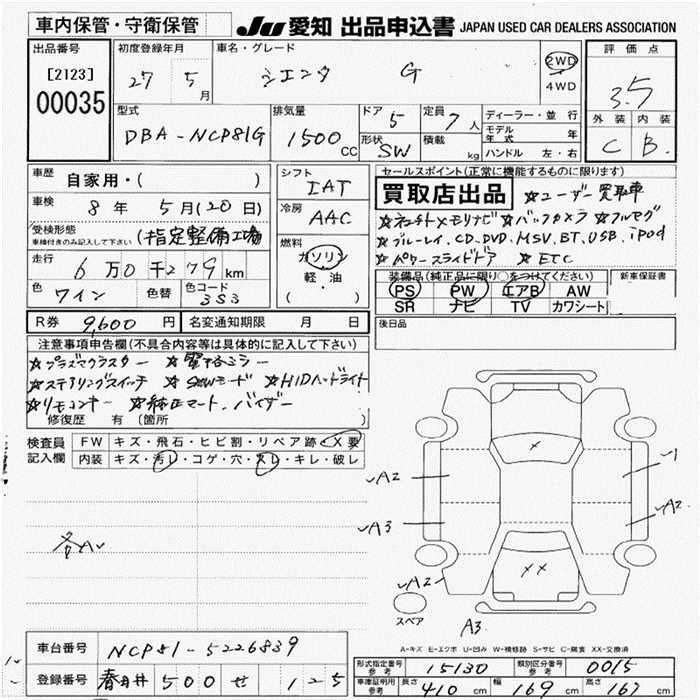 車内保管・守衛保管
JU 愛知 出品申込書 JAPAN USED CAR DEALERS ASSOCIATION
出品番号
[2123]
00035
初度登録年月
27 5月
車名・グレード
シエンタ G
2WD
4WD
評価点
3.5
外装 内装
C B
型式
DBA-NCP81G
排気量
1500 CC
ドア 5
形状 SW
定員 7人
積載 kg
ディーラー・並行
モデル年式 年
ハンドル 左・右
車歴
自家用・( )
車検 8年 5月(20日)
受検形態
車検付きのみ記入して下さい
(指定整備工場
走行 6万0千279km
色 ワイン 色替 色コード 3S3
シフト IAT
冷房 AAC
燃料
ガソリン
軽・油
( )
セールスポイント(正常に機能するものに限ります)
買取店出品 ☆ユーザー買取車
☆ネットメモリナビ ☆バックカメラ ☆フルセグ
☆ブルーレイ.CD.DVD.MSV.BT.USB.iPod
☆パワースライドドア ☆ETC
装備品(純正品に限り○をつけてください)
新車保証書
PS PW エアB AW
SR ナビ TV カワシート
後日品
R券 9,600円 名変通知期限 月 日
注意事項申告欄(不具合内容等は具体的に記入して下さい)
☆プラズマクラスター ☆電格ミラー
☆ステアリングスイッチ ☆SNWモード ☆HIDヘッドライト
☆リモコンキー ☆純正マット.バイザー
修復歴 有(箇所 )
検査員
記入欄
FW キズ・飛石・ヒビ割・リペア跡・X要
内装 キズ・汚レ・コゲ・穴・スレ・キレ・破レ
各A
X
A2
1
A2
A3
A2
XX
A3
スペア
A=キズ E=エクボ U=凹み W=補修跡 S=サビ C=腐食 XX=交換済
車台番号 NCP81-5226839
登録番号 春日井 500 せ 125
形式指定番号 参考 15130 類別区分番号 参考 0015
車庫証明用 参考 長さ 410cm 幅 169cm 高さ 167cm